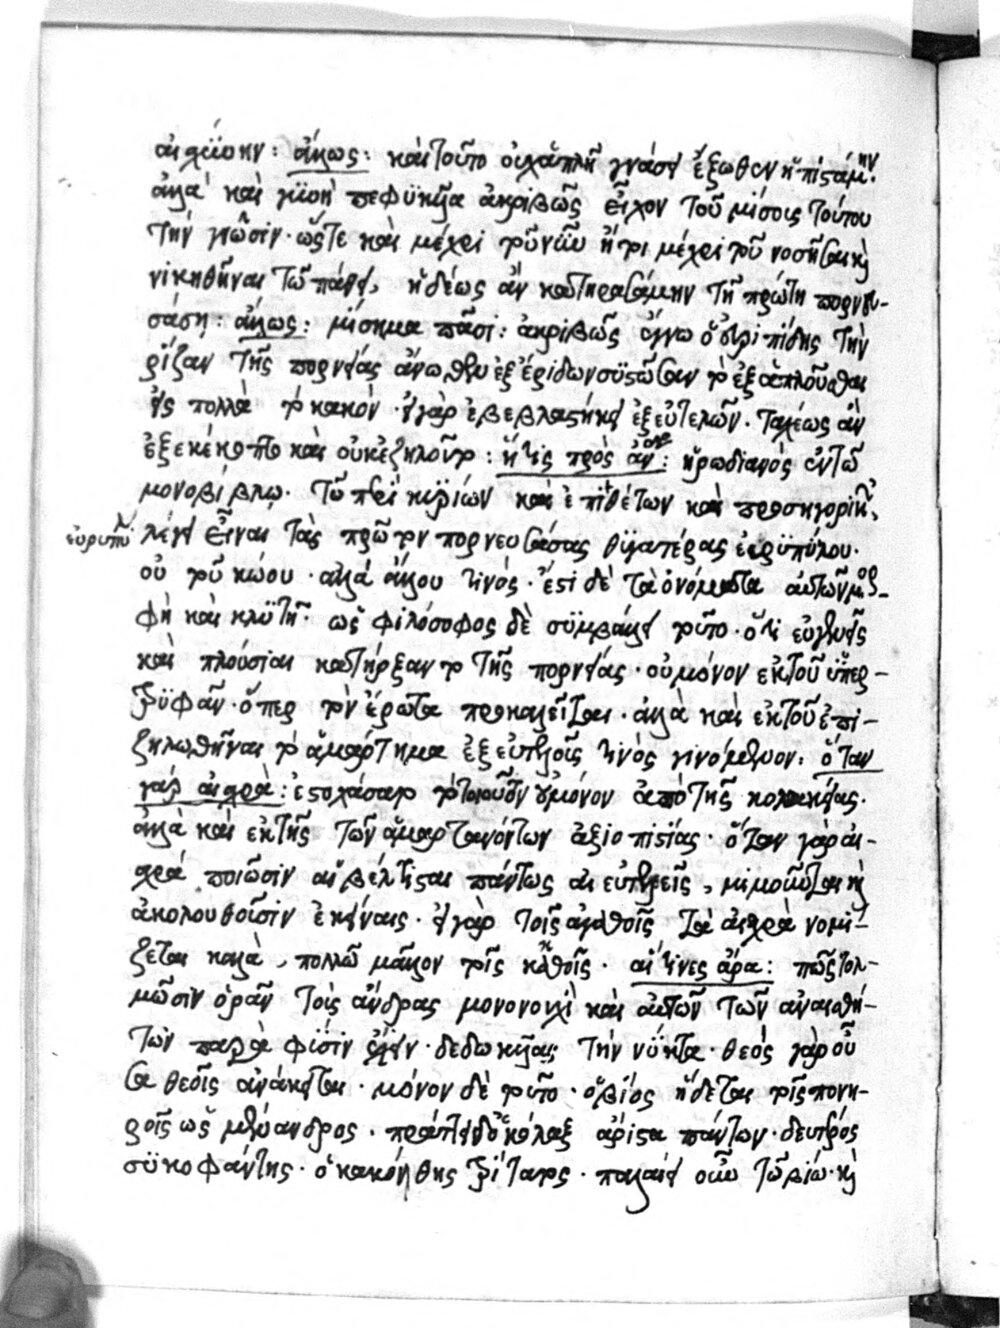 αἰσχύνην: ἄλλως: καὶ τοῦτο οὐχ ἁπλῆ γνώσει ἔξωθεν ἠπιστάμην.
ἀλλὰ καὶ γυνὴ πεφυκῦα ἀκριβῶς εἶχον τοῦ μίσους τούτου
τὴν γνῶσιν· ὥστε καὶ μέχρι τοῦ νῦν ἤτοι μέχρι τοῦ νοσῆσαι καὶ
νικηθῆναι τῷ πάθει, ἡδέως ἂν κατηρασάμην τῇ πρώτῃ πορνευ-
σάσῃ: ἄλλως: μίσημα πᾶσι: ἀκριβῶς ἔγνω ὁ εὐριπίδης τὴν
ῥίζαν τῆς πορνείας ἄνωθεν ἐξ
εἰς πολλὰ τὸ κακὸν· εἰ γὰρ ἐβεβλαστήκει ἐξ εὐτελῶν· ταχέως ἂν
ἐξεκέκοπτο καὶ οὐκ ἐζηλοῦτο: ἥτις πρὸς ἄνδρας: ἡρωδιανὸς ἐν τῷ
μονοβίβλῳ· τῷ περὶ κυρίων καὶ ἐπιθέτων καὶ προσηγορικῶν,
λέγει εἶναι τὰς πρῶτον πορνευσάσας θυγατέρας εὐρυπύλου·
οὐ τοῦ κώου· ἀλλὰ ἄλλου τινός· ἔστι δὲ τὰ ὀνόματα αὐτῶν μορ-
φὴ καὶ κλυτὴ· ὡς φιλόσοφος δὲ συμβάλλει τοῦτο· ὅτι εὐγενεῖς
καὶ πλούσιαι κατῆρξαν τὸ τῆς πορνείας· οὐ μόνον ἐκ τοῦ ὑπερ-
τρυφᾶν· ὅπερ τὸν ἔρωτα προκαλεῖται· ἀλλὰ καὶ ἐκ τοῦ ἐπι-
ζηλωθῆναι τὸ ἁμάρτημα ἐξ εὐγενοῦς τινὸς γινόμενον: ὅταν
γὰρ αἰσχρὰ: ἐστοχάσατο τὸ τοιοῦτον οὐ μόνον ἀπὸ τῆς κολακείας·
ἀλλὰ καὶ ἐκ τῆς τῶν ἁμαρτανόντων ἀξιοπιστίας· ὅταν γὰρ αἰ-
σχρὰ ποιῶσιν αἱ βέλτισται πάντως αἱ εὐγενεῖς, μιμοῦνται καὶ
ἀκολουθοῦσιν ἐκείναις· εἰ γὰρ τοῖς ἀγαθοῖς τὰ αἰσχρὰ νομί-
ζεται καλὰ, πολλῷ μᾶλλον τοῖς κακοῖς· αἵτινες ἄρα: πῶς τολ-
μῶσιν ὁρᾶν τοὺς ἄνδρας μονονουχὶ καὶ αὐτῶν τῶν ἀναισθή-
των παρὰ φύσιν δεδοικυῖαι τὴν νύκτα· θεὸς γὰρ οὖ-
σα θεοῖς ἀνάκειται· μόνον δὲ τοῦτο· ὁ βίος ἥδεται τοῖς πονη-
ροῖς ὡς μένανδρος· πράττει δ' ὁ κόλαξ ἄριστα πάντων· δεύτερος
συκοφάντης· ὁ κακοήθης τρίτατος· παλαίει οὖν τῷ βίῳ· καὶ